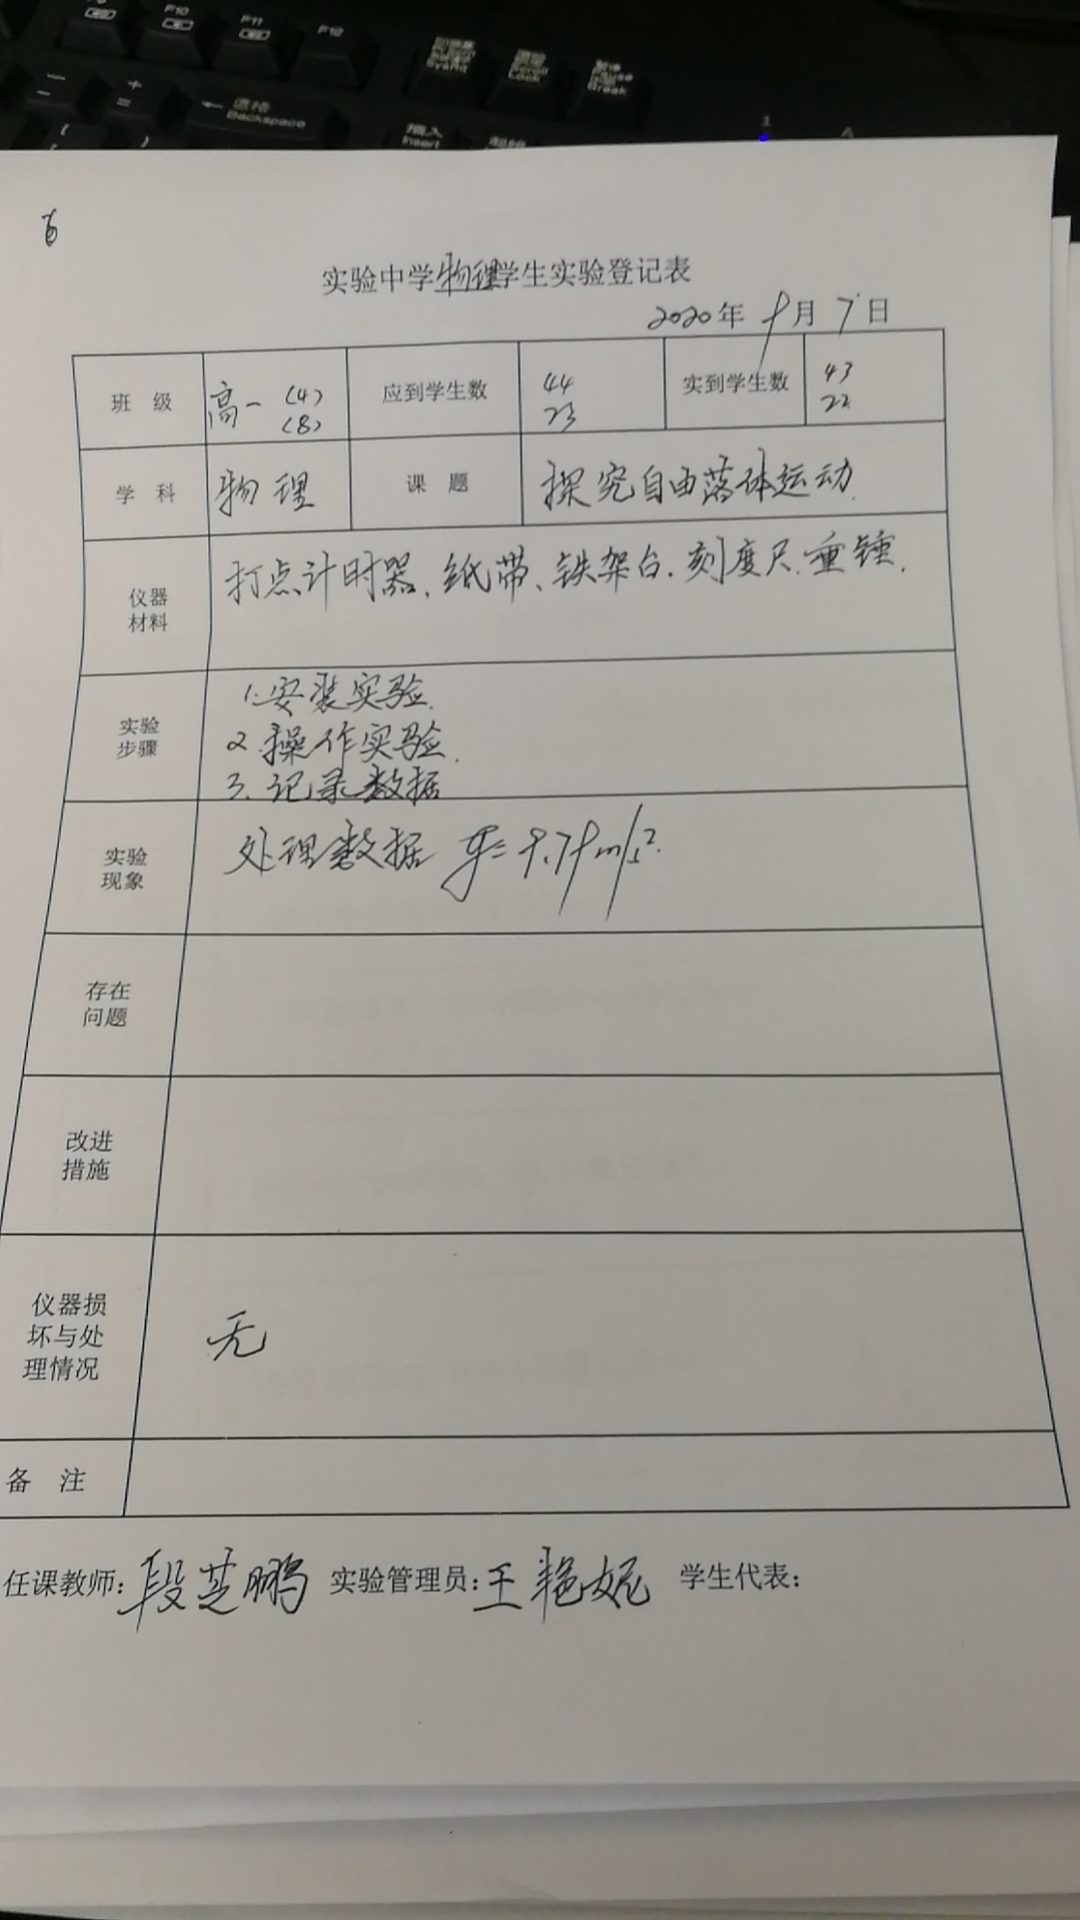 F10
F11
F12
SysRq
Scroll
Lock
Pause
Break
退格
Backspace
插入
Insert
实验中学物理学生实验登记表
2020年 9月 7日
班 级 高一 (4) (8) 应到学生数 44 23 实到学生数 43 22
学 科 物理 课 题 探究自由落体运动
仪器
材料
打点计时器、纸带、铁架台、刻度尺、重锤.
实验
步骤
1.安装实验.
2.操作实验.
3.记录数据
实验
现象
处理数据 g=9.79m/s².
存在
问题
改进
措施
仪器损
坏与处
理情况
无
备 注
任课教师:段芝鹏 实验管理员:王艳妮 学生代表: